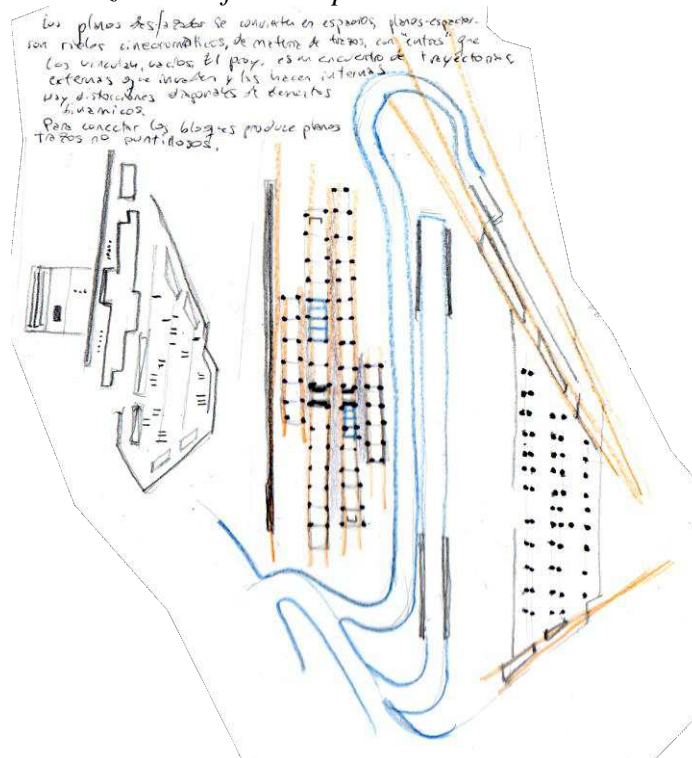 Los planos desfazados se convierten en espacios, planos-espacios.
son rieles cinecromáticos, de materia de trazos, con "entres" que
los vinculan, vacíos. El proy. es un encuentro de trayectorias
externas que invaden y las hacen internas
Hay distorciones diagonales de
dinamicos.
Para conectar los bloques produce planos
TRAZOS no puntillosos.